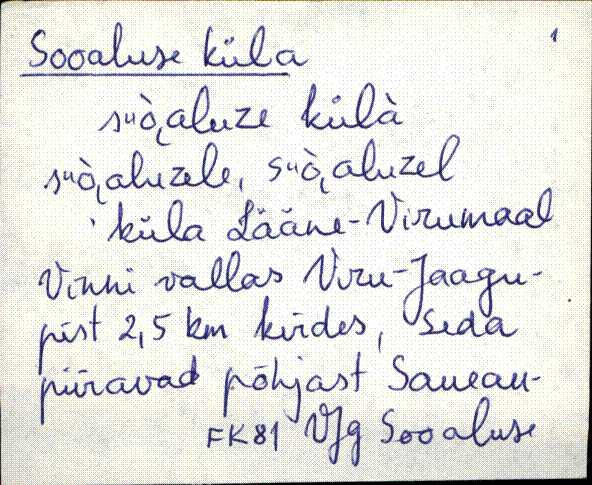 1
Sooaluse küla
suò̭aluze külà
suò̭aluzele, suò̭aluzel
küla Lääne-Virumaal
Vinni vallas Viru-Jaagu-
pist 2,5 km kirdes, seda
piiravad põhjast Saueau-
FK81 VJg Sooaluse